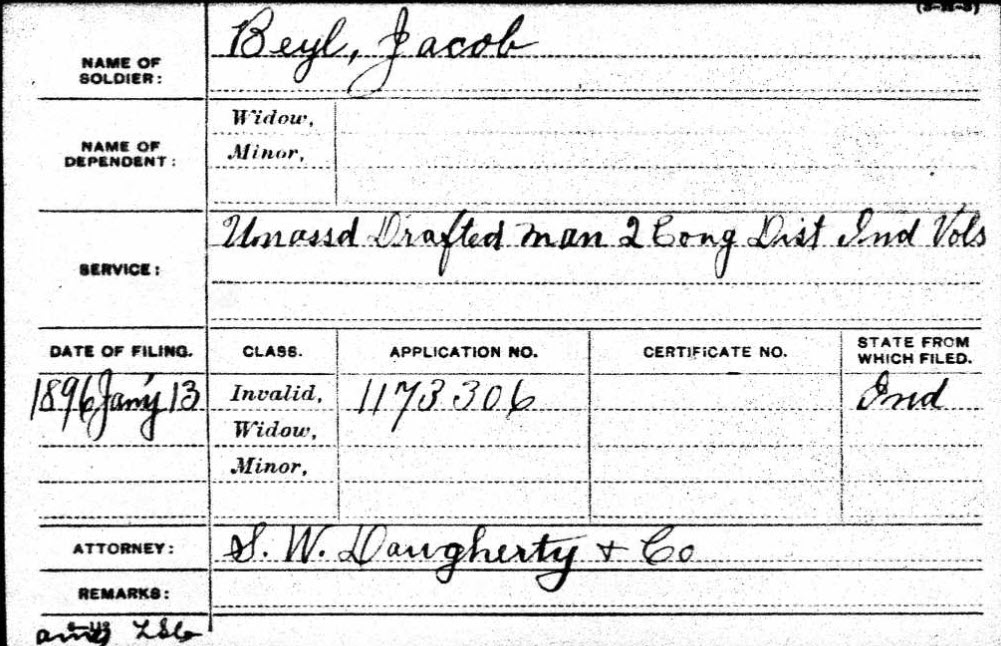 Beyl, Jacob
NAME OF
SOLDIER:
NAME OF
DEPENDENT:
Widow,
Minor,
SERVICE:
Unassd Drafted man 2 Cong Dist Ind Vols
DATE OF FILING.
CLASS.
APPLICATION NO.
CERTIFICATE NO.
STATE FROM
WHICH FILED.
1896 Jany 13
Invalid,
1173306
Ind
Widow,
Minor,
ATTORNEY:
S. W. Daugherty + Co
REMARKS: